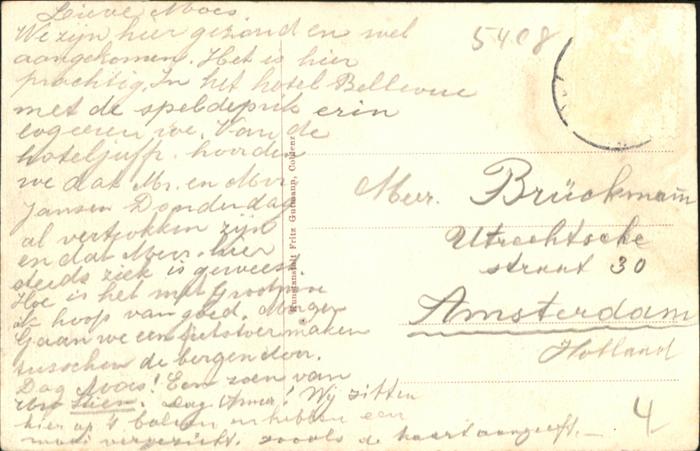 Lieve Moes.
We zijn hier gezond en wel
aangekomen. Het is hier
prachtig. In het hotel Bellevue
met de speldeprik erin
logeeren we. Van de
hoteljuffr. hoorden
we dat Mr. en Mevr.
Jansen Donderdag
al vertrokken zijn
en dat Mevr. hier
steeds ziek is geweest.
Hoe is het met Grootmoe
ik hoop van goed. Morgen
Gaan we een fietstoer maken
tusschen de bergen door.
Dag Moes! Een zoen van
Uw Stien. Dag! Wij zitten
hier op 't balcon en hebben een
mooi vergezicht. zooals de kaart aangeeft.—
5408
Kunstanstalt Fritz Gutmann, Coblenz
Mevr. Brückmann
Utrechtsche
straat 30
Amsterdam
Holland
4